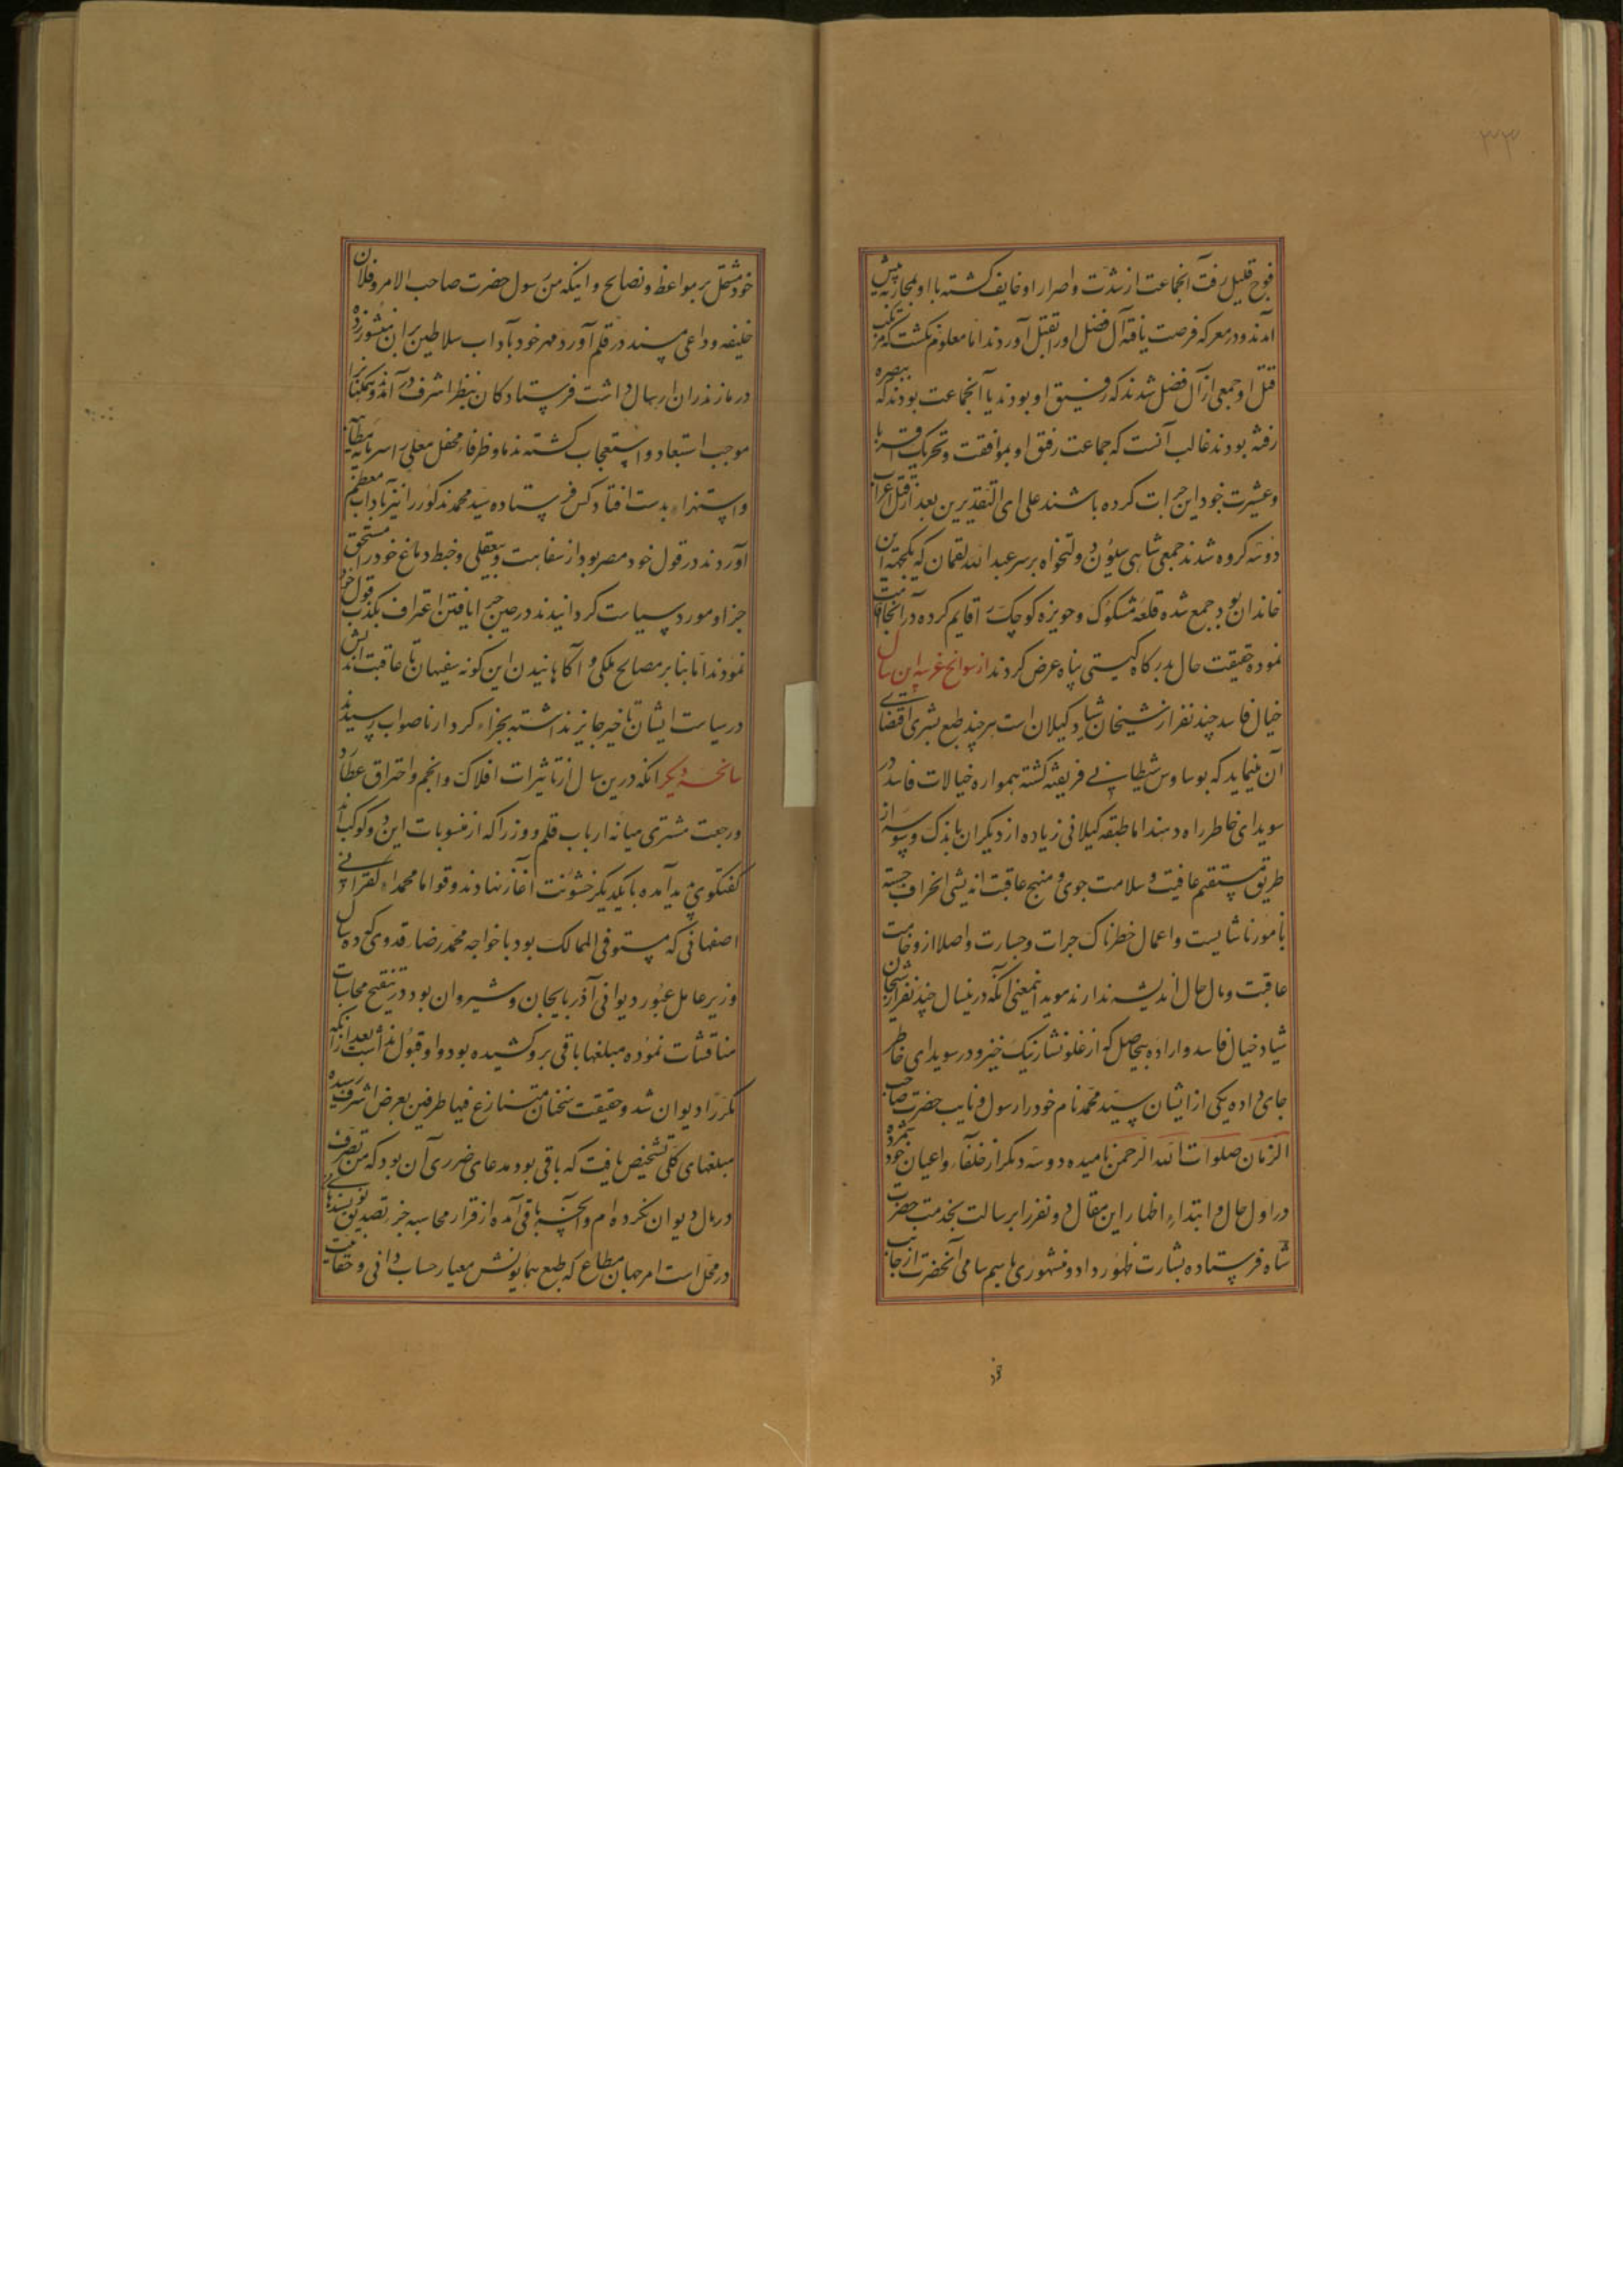 ۳۳
فوج قلیل رفت آنجماعت از شدت و اصرار او خایف کشته با او بمحاربه پیش
آمدند و در معرکه فرصت یافته آل فضل اورا بقتل آوردند اما معلوم نکشت که مرتکب
قتل او جمعی از آل فضل شدند که رفیق او بودند یا آنجماعت بودند که ببصره
رفته بودند غالب آنست که جماعت رفق او بموافقت و تحریک اقربا
و عشیرت خود این جرات کرده باشند علی ای التقدیرین بعد از قتل اعراب
دوسه کروه شدند جمعی شاهی سیون و دولتخواه بر سر عبد الله لقمان که یکجهت این
خاندان بود جمع شده قلعه مشکوک و حویزه کوچک را قایم کرده در آنجا اقامت
نموده حقیقت حال بدرکاه کیتی پناه عرض کردند از سوانح غریبه این سال
خیال فاسد چند نفر از شیخان شیاد کیلان است هر چند طبع بشری اقتضای
آن مینماید که بوساوس شیطانی فریفته کشته همواره خیالات فاسد در
سویدای خاطر راه دهند اما طبقه کیلانی زیاده از دیکران باندک وسوسه از
طریق مستقیم عافیت و سلامت جوی و منهج عاقبت اندیشی انحراف جسته
بامور ناشایست و اعمال خطرناک جرات و جسارت و اصلا از وخامت
عاقبت و مال حال اندیشه ندارند موید اینمعنی آنکه درینسال چند نفر از شیخان
شیاد خیال فاسد و اراده بیحاصل که از غلو نشاء بنک خیزد در سویدای خاطر
جای داده یکی از ایشان سید محمد نام خود را رسول و نایب حضرت صاحب
الزمان صلوات الله الرحمن نامیده دوسه دیکر از خلفا و اعیان خود شمرده
در اول حال و ابتداء اظهار این مقال دو نفر را برسالت بخدمت حضرت
شاه فرستاده بشارت ظهور داد و منشوری باسم سامی آنحضرت از جانب
خود
خود مشتمل بر مواعظ و نصایح و اینکه من رسول حضرت صاحب الامر و فلان
خلیفه و داعی مسند در قلم آورد مهر خود بآداب سلاطین بران منشور زده
در مازندران ارسال داشت فرستادکان بنظر اشرف در آمدند و همکنانرا
موجب استبعاد و استعجاب کشته ندما و ظرفاء محفل معلی را سرمایه مطایبه
و استهزاء بدست افتاد کس فرستاده سید محمد مذکور را نیز بآداب معظم
آوردند در قول خود مصر بود از سفاهت و بیعقلی و خبط دماغ خود را مستحق
جزا و مورد سیاست کردانیدند در حین جزا یافتن اعتراف بکذب قول خود
نمودند اما بنابر مصالح ملکی و آکاهانیدن این کونه سفیهان نا عاقبت اندیش
در سیاست ایشان تاخیر جایز نداشته بجزاء کردار ناصواب رسیدند
سانحه دیکر آنکه درین سال از تاثیرات افلاک و انجم و احتراق عطارد
و رجعت مشتری میانه ارباب قلم و وزرا که از منسوبات این دو کوکب‌اند
کفتکوی پدید آمده با یکدیکر خشونت آغاز نهادند و قواما محمدا کفرانی
اصفهانی که مستوفی الممالک بود با خواجه محمد رضا قدوی که ده سال
وزیر عامل عبور دیوانی آذربایجان و شیروان بود در تنقیح محاسبات
مناقشات نموده مبلغها باقی برو کشیده بود و او قبول نداشت بعد از آنکه
مکررا دیوان شد و حقیقت سخنان متنازع فیها طرفین بعرض اشرف رسیده
مبلغهای کلی تشخیص یافت که باقی بود مدعای ضرری آن بود که من تصرف
در مال دیوان نکرده‌ام و آنچه باقی آمده از قرار محاسبه جز تصدیق نویسندهای
در محل است امر جهان مطاع که طبع همایونش معیار حساب دانی و حقانیت